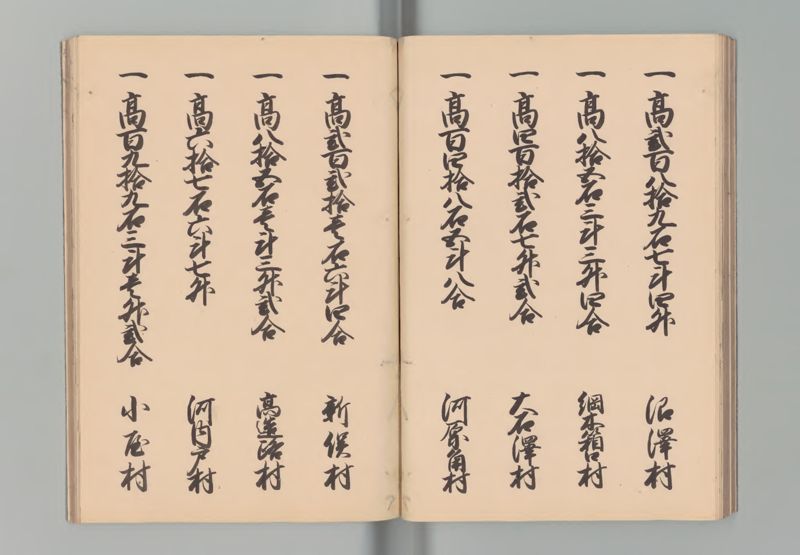 一高弐百八拾九石七斗四升 沼澤村
一高八拾五石三斗三升四合 綱木箱口村
一高四百拾弐石七升弐合 大石澤村
一高百四拾八石五斗八合 河原角村
一高弐百弐拾壱石六斗四合 新俣村
一高八拾五石壱斗三升弐合 高造路村
一高六拾七石六斗七升 河内戸村
一高百九拾九石三斗壱升弐合 小屋村